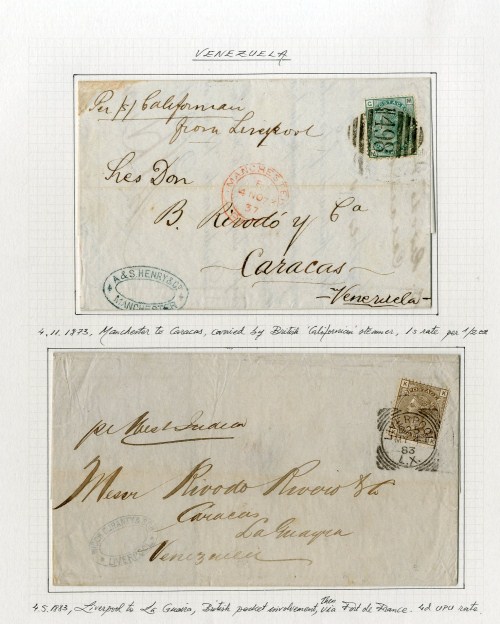 VENEZUELA
Per S/S Californian
from Liverpool
498
Sres Don
MANCHESTER
4 NO
B. Rivodó y Ca
Caracas
Venezuela
A & S. HENRY & Co
MANCHESTER
4.11.1873, Manchester to Caracas, carried by British "Californian" steamer, 1s rate per 1/2 oz
LIVERPOOL
83
L.X.
pr West India
Messr Rivodo Rivero & Co
Caracas
La Guayra
Venezuela
LIVERPOOL
4.5.1883, Liverpool to La Guaira, British packet involvement, then via Fort de France. 4d UPU rate.